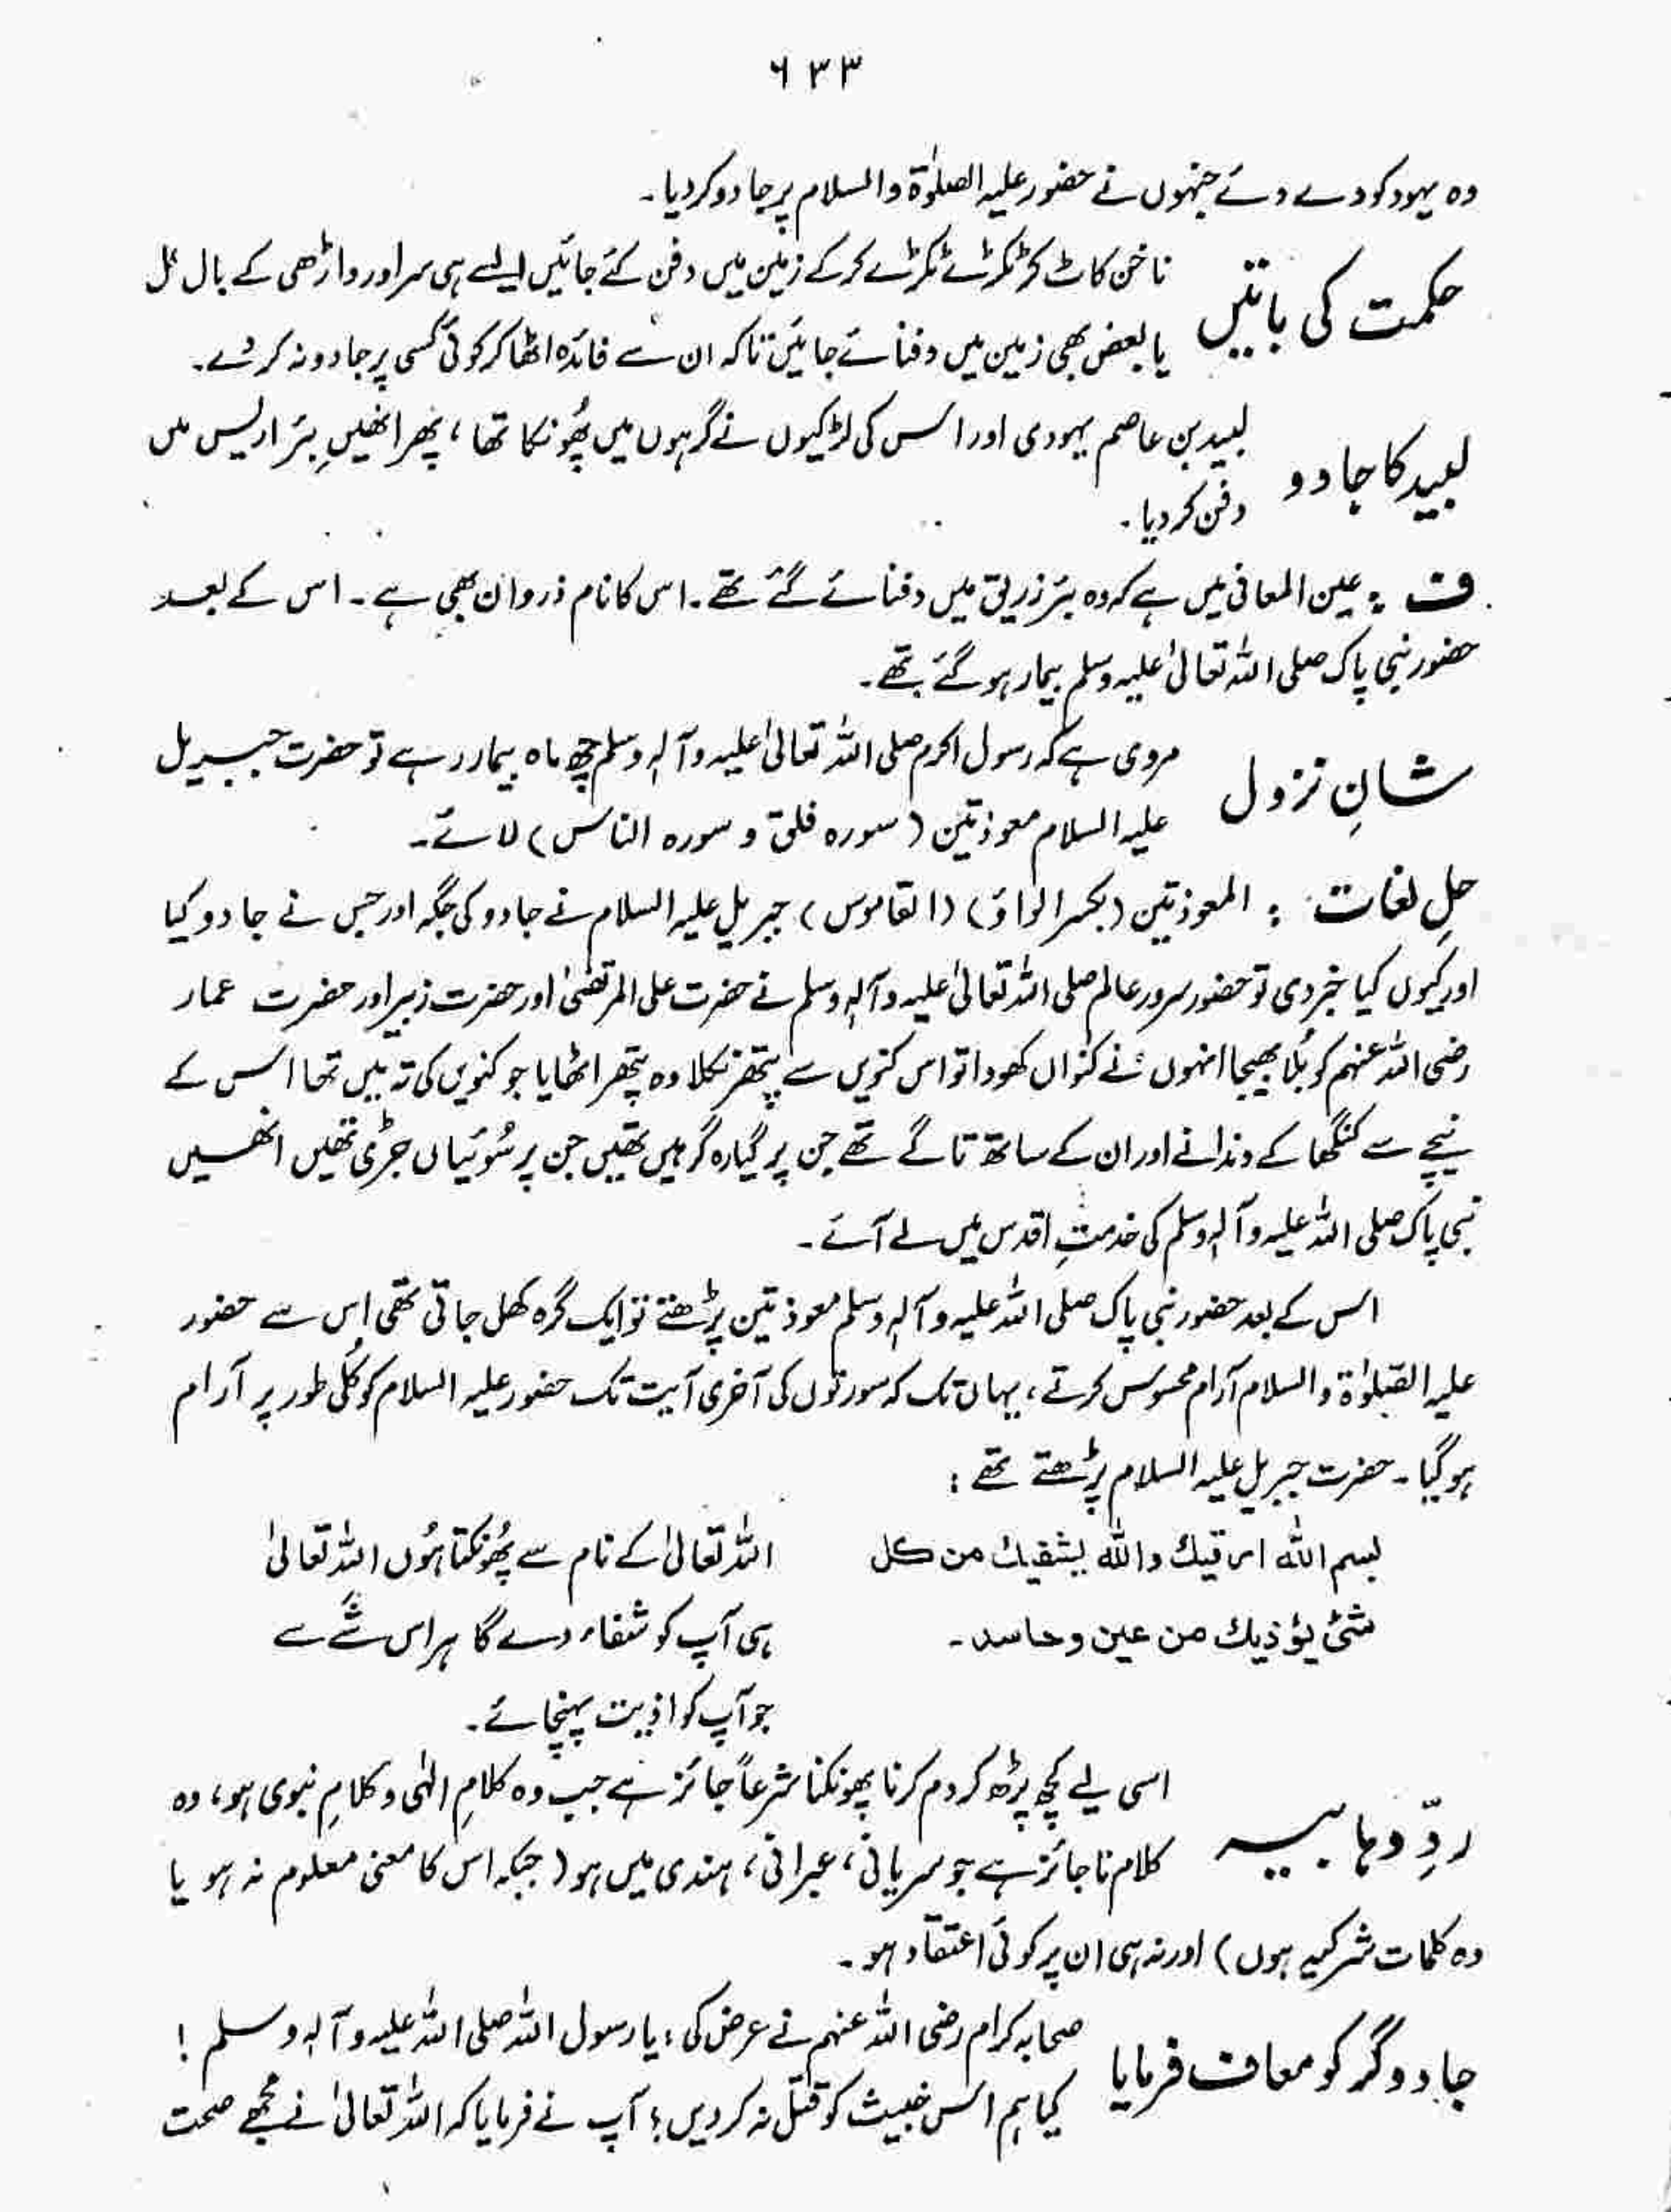 ۶۳۳
وہ یہود کو دے دئے جنہوں نے حضور علیہ الصلوٰۃ والسلام پر جادو کر دیا۔
حکمت کی باتیں
ناخن کاٹ کر ٹکڑے ٹکڑے کر کے زمین میں دفن کئے جائیں ایسے ہی سر اور داڑھی کے بال کل
یا بعض بھی زمین میں دفنائے جائیں تاکہ ان سے فائدہ اٹھا کر کوئی کسی پر جادو نہ کر دے۔
لبید کا جادو
لبید بن عاصم یہودی اور اس کی لڑکیوں نے گرہوں میں پُھونکا تھا، پھر انھیں بئر اریس میں
دفن کر دیا۔
ف : عین المعانی میں ہے کہ وہ بئر زریق میں دفنائے گئے تھے۔ اس کا نام ذروان بھی ہے۔ اس کے بعد
حضور نبی پاک صلی اللہ تعالیٰ علیہ وسلم بیمار ہو گئے تھے۔
شانِ نزول
مروی ہے کہ رسول اکرم صلی اللہ تعالیٰ علیہ وآلہٖ وسلم چھ ماہ بیمار رہے تو حضرت جبریل
علیہ السلام معوذتین (سورہ فلق و سورہ الناس) لائے۔
حلِ لغات : المعوذتین (بکسر الواؤ) (القاموس) جبریل علیہ السلام نے جادو کی جگہ اور جس نے جادو کیا
اور کیوں کیا خبر دی تو حضور سرور عالم صلی اللہ تعالیٰ علیہ وآلہٖ وسلم نے حضرت علی المرتضیٰ اور حضرت زبیر اور حضرت عمار
رضی اللہ عنہم کو بُلا بھیجا انہوں نے کنواں کھودا تو اس کنویں سے پتھر نکلا وہ پتھر اٹھایا جو کنویں کی تہ میں تھا اس کے
نیچے سے کنگھا کے دندانے اور ان کے ساتھ تاگے تھے جن پر گیارہ گرہیں تھیں جن پر سُوئیاں جڑی تھیں انھیں
نبی پاک صلی اللہ علیہ وآلہٖ وسلم کی خدمتِ اقدس میں لے آئے۔
اس کے بعد حضور نبی پاک صلی اللہ علیہ وآلہٖ وسلم معوذتین پڑھتے تو ایک گرہ کھل جاتی تھی اِس سے حضور
علیہ الصّلوٰۃ والسلام آرام محسوس کرتے، یہاں تک کہ سورتوں کی آخری آیت تک حضور علیہ السلام کو کُلی طور پر آرام
ہو گیا۔ حضرت جبریل علیہ السلام پڑھتے تھے :
بسم اللہ ارقیك واللہ یشفیك من کل
شئ یؤذیك من عین وحاسد۔
اللہ تعالیٰ کے نام سے پُھونکتا ہُوں اللہ تعالیٰ
ہی آپ کو شفاء دے گا ہر اس شَے سے
جو آپ کو اذیت پہنچائے۔
ردِّ وہابیہ
اسی لیے کچھ پڑھ کر دم کرنا پھونکنا شرعاً جائز ہے جب وہ کلامِ الہٰی و کلامِ نبوی ہو، وہ
کلام ناجائز ہے جو سریانی، عبرانی، ہندی میں ہو (جبکہ اس کا معنیٰ معلوم نہ ہو یا
وہ کلمات شرکیہ ہوں) اور نہ ہی ان پر کوئی اعتقاد ہو۔
جادوگر کو معاف فرمایا
صحابہ کرام رضی اللہ عنہم نے عرض کی، یا رسول اللہ صلی اللہ علیہ وآلہٖ وسلم !
کیا ہم اس خبیث کو قتل نہ کر دیں؟ آپ نے فرمایا کہ اللہ تعالیٰ نے مجھے صحت